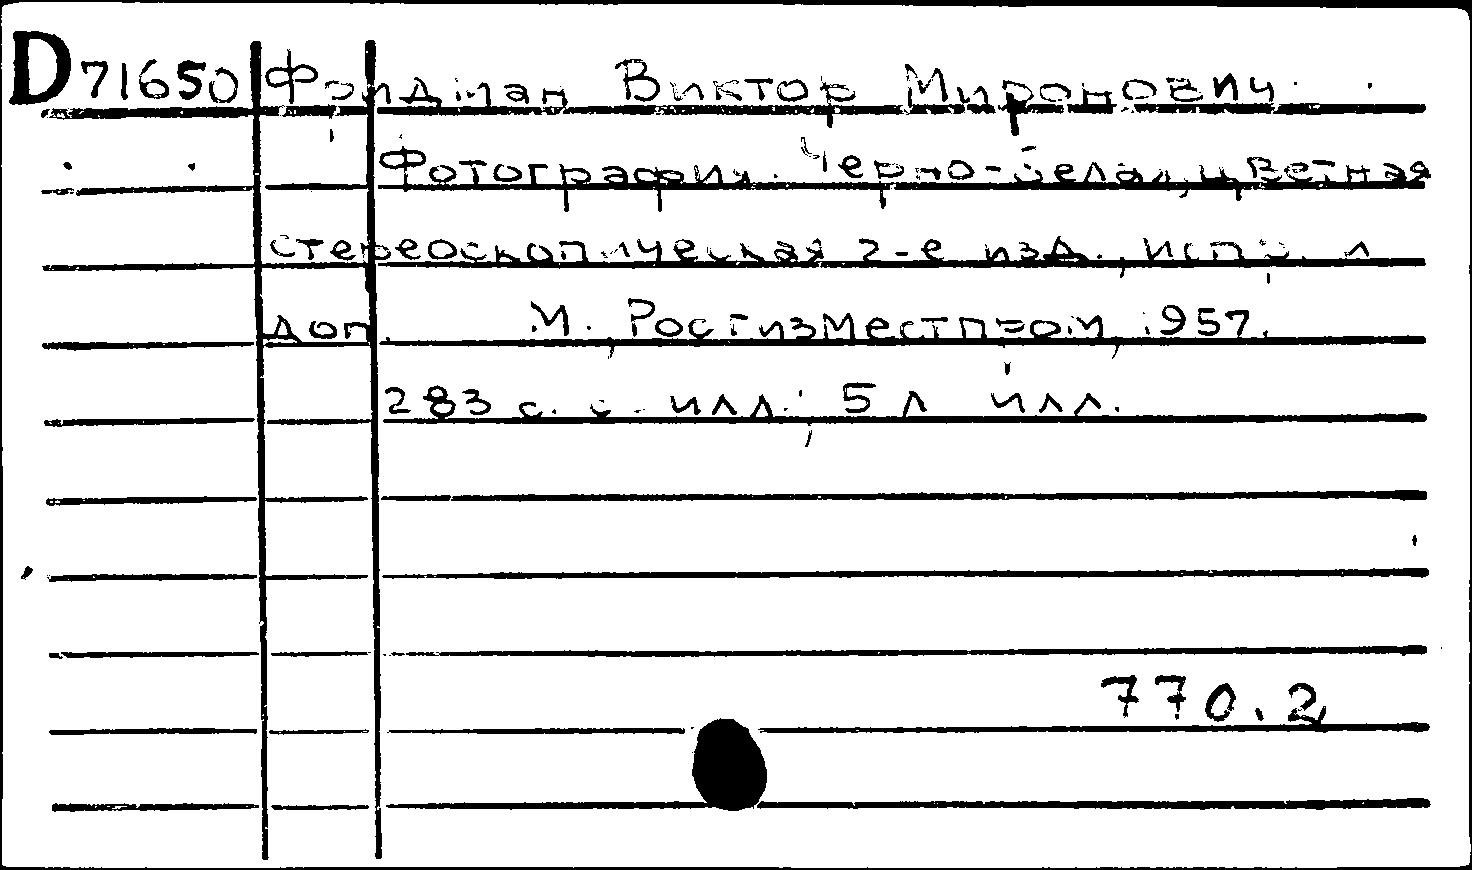 D71650 Фридман Виктор Миронович.
Фотография. Черно-белая, цветная
стереоскопическая 2-е изд., испр. и
доп. М., Росгизместпром, 1957.
283 с. с илл.; 5 л илл.
770.2